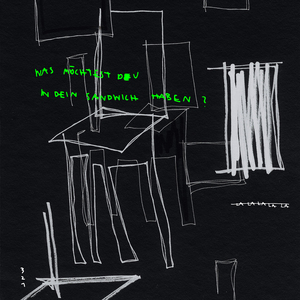 WAS MÖCHTEST DU
IN DEIN SANDWICH HABEN ?
LA LA LA LA LA